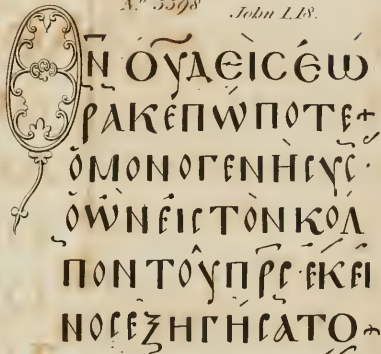 N.º 5598 John I.18.
ΘΝ̅ ΟΥ̓ΔΕΙϹΈΩ
ΡΑΚΕΠΏΠΟΤΕ+
ὉΜΟΝΟΓΕΝῊϹΥ̅Ϲ̅·
ὉὬΝΕΙϹΤῸΝΚΟΛ
ΠΟΝΤΟΥ͂Π̅Ρ̅Ϲ̅·ἘΚΕΙ
ΝΟϹἘΞΗΓΉϹΑΤΟ+